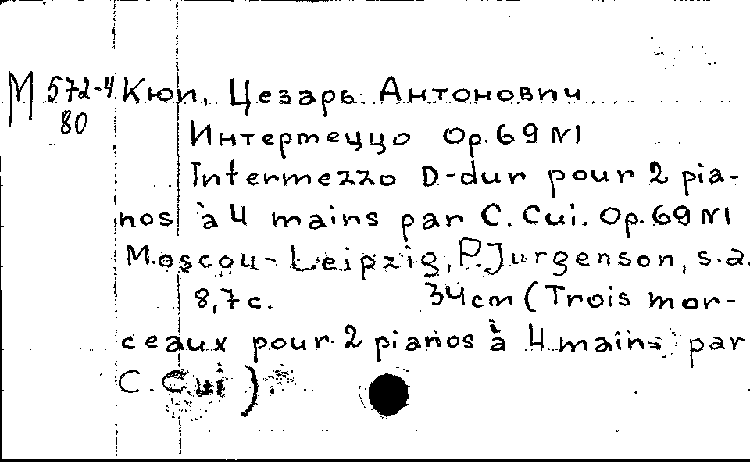 М 572-4 Кюи, Цезарь Антонович
80
Интермеццо Op. 69 N1
Intermezzo D-dur pour 2 pia-
nos à 4 mains par C. Cui. Op. 69 N1
Moscou-Leipzig, P. Jurgenson, s.a.
8,7 c. 34 cm (Trois mor-
ceaux pour 2 pianos à 4 mains par
C. Cui)